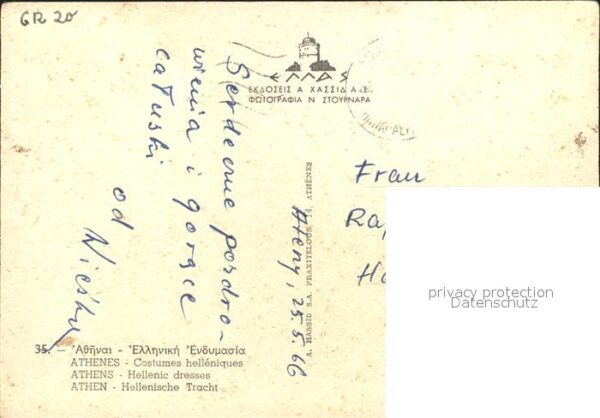 GR 20
ΕΛΛΑΣ
ΕΚΔΟΣΕΙΣ Α ΧΑΣΣΙΔ Α.Ε.
ΦΩΤΟΓΡΑΦΙΑ Ν ΣΤΟΥΡΝΑΡΑ
Serdeczne pozdro-
wienia i gorące
całuski
od
Ateny, 25.5.66
A. HASSID S.A. PRAXITELOUS, 14, ATHÈNES
Frau
Ra
Ha
privacy protection
Datenschutz
35. – Ἀθῆναι - Ἑλληνική Ἐνδυμασία
ATHENES - Costumes helléniques
ATHENS - Hellenic dresses
ATHEN - Hellenische Tracht